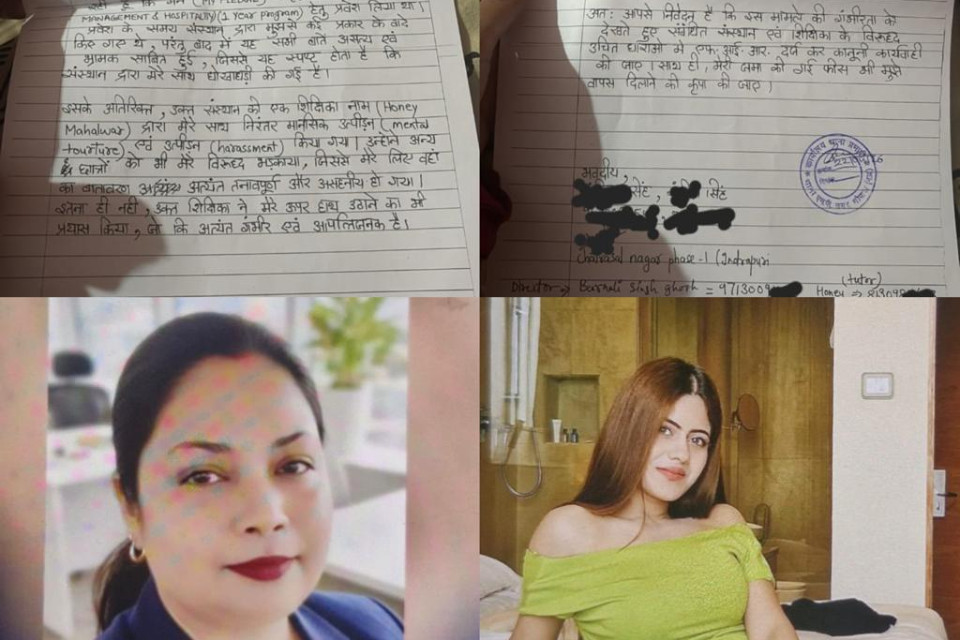 MANAGEMENT & HOSPITALITY (1 Year program) हेतु प्रवेश लिया था।
प्रवेश के समय संस्थान द्वारा मुझसे कई प्रकार के वादे
किए गए थे, परंतु बाद में यह सभी बातें असत्य एवं
भ्रामक साबित हुई, जिससे यह स्पष्ट होता है कि
संस्थान द्वारा मेरे साथ धोखाधड़ी की गई है।
इसके अतिरिक्त, उक्त संस्थान की एक शिक्षिका नाम (Honey
Mahalwar) द्वारा मेरे साथ निरंतर मानसिक उत्पीड़न (mental
tourture) एवं उत्पीड़न (harassment) किया गया। उन्होंने अन्य
छात्रों को भी मेरे विरुद्ध भड़काया, जिससे मेरे लिए वहां
का वातावरण अत्यंत तनावपूर्ण और असहनीय हो गया।
इतना ही नहीं, उक्त शिक्षिका ने मेरे ऊपर हाथ उठाने का भी
प्रयास किया, जो कि अत्यंत गंभीर एवं आपत्तिजनक है।
अतः आपसे निवेदन है कि इस मामले की गंभीरता को
देखते हुए संबंधित संस्थान एवं शिक्षिका के विरूद्ध
उचित धाराओं में एफ.आई.आर. दर्ज कर कानूनी कार्यवाही
की जाए। साथ ही, मेरी जमा की गई फीस भी मुझे
वापस दिलाने की कृपा की जाए।
भवदीय,
सिंह, सिंह
nagar phase-1 (Indrapuri
Director → Singh ghosh = 9713009
(tutor)
Honey